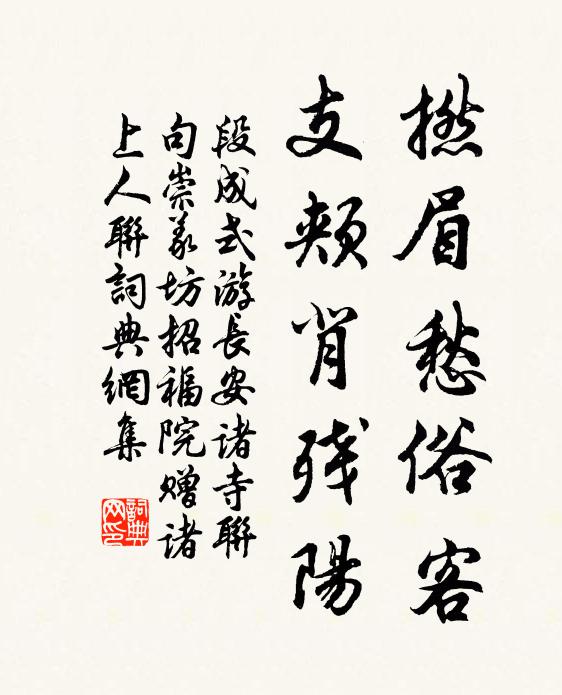 撚眉愁俗客
支頰背残陽
段成式游長安諸寺聯
句崇義坊招福院贈諸
上人聯詞典網集
詞典
网印